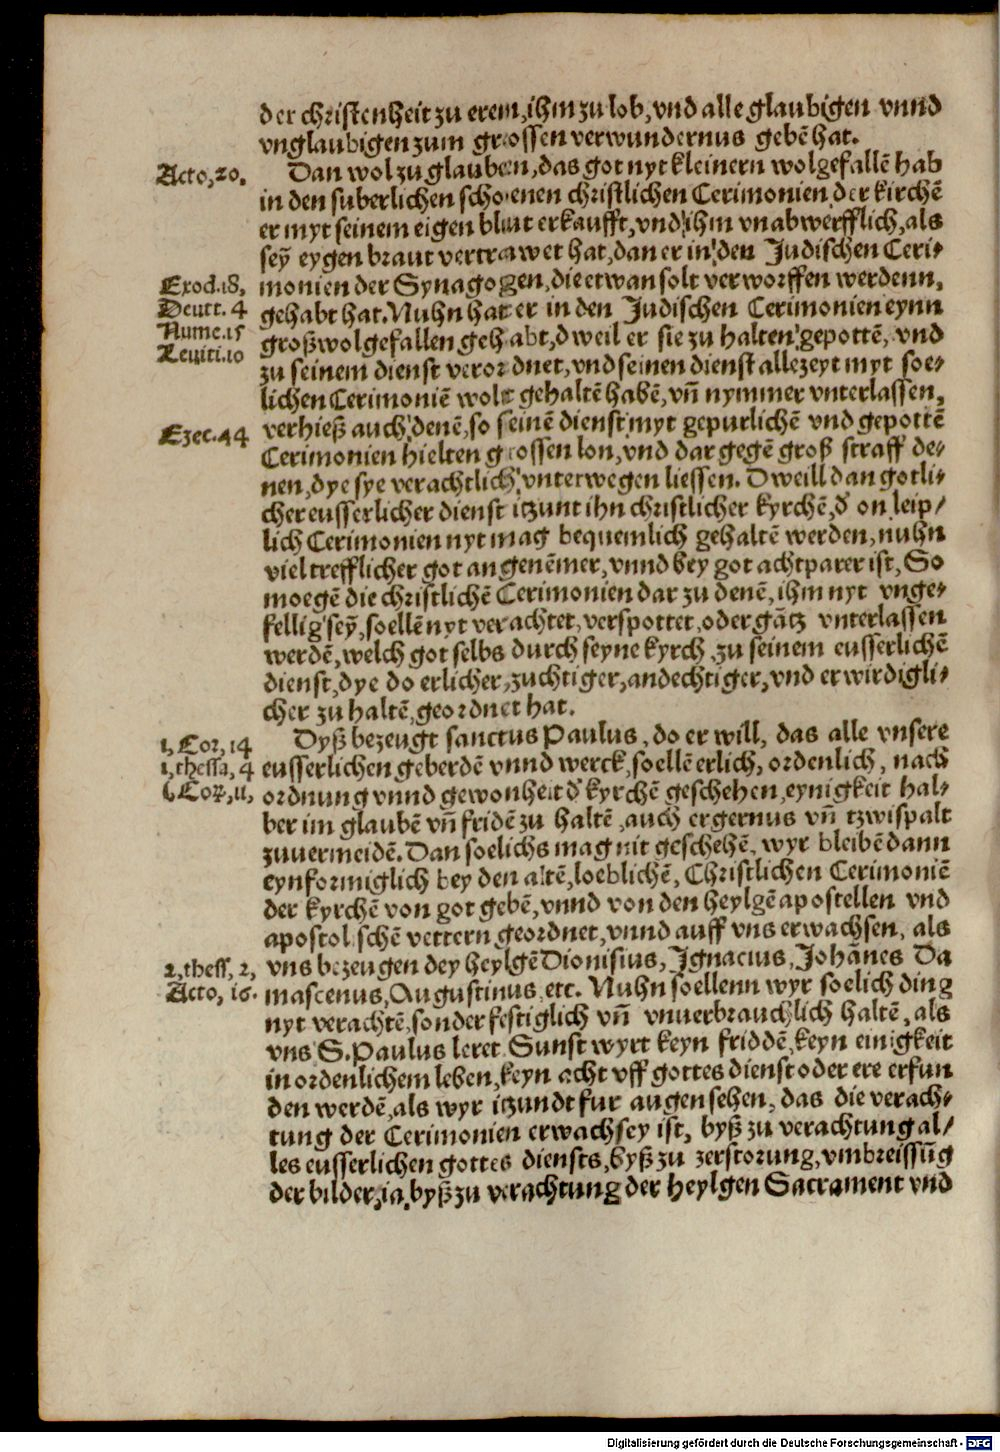 der christenheit zu erem, ihm zu lob, vnd alle glaubigen vnnd
vnglaubigen zum grossen verwundernus gebẽ hat.
Acto, 20.
Dan wol zu glauben, das got nyt kleinern wolgefallẽ hab
in den suberlichen schoenen christlichen Cerimonien der kirchẽ
er myt seinem eigen blut erkaufft, vnd ihm vnabwerfflich, als
seÿ eygen braut vertrawet hat, dan er in den Judischen Ceri-
Exod. 18,
monien der Synagogen, die etwan solt verworffen werdenn,
Deutt. 4
gehabt hat. Nuhn hat er in den Judischen Cerimonien eynn
Nume. 15
groß wolgefallen gehabt, dweil er sie zu halten gepottẽ, vnd
Leuiti. 10
zu seinem dienst verordnet, vnd seinen dienst allezeyt myt soe-
lichen Cerimoniẽ wolt gehaltẽ habẽ, vñ nymmer vnterlassen,
Ezec. 44
verhieß auch denẽ, so seinẽ dienst myt gepurlichẽ vnd gepottẽ
Cerimonien hielten grossen lon, vnd dar gegẽ groß straff de-
nen, dye sye verachtlich vnterwegen liessen. Dweill dan gotli-
cher eusserlicher dienst itzunt ihn christlicher kyrchẽ, d̕ on leip/
lich Cerimonien nyt mag bequemlich gehaltẽ werden, nuhn
viel trefflicher got angenẽmer, vnnd bey got achtparer ist, So
moegẽ die christlichẽ Cerimonien dar zu denẽ, ihm nyt vnge-
fellig seÿ, soellẽ nyt verachtet, verspottet, oder gãtz vnterlassen
werdẽ, welch got selbs durch seyne kyrch zu seinem eusserlichẽ
dienst, dye do erlicher, zuchtiger, andechtiger, vnd erwirdigli-
cher zu haltẽ, geordnet hat.
1, Cor, 14
Dyß bezeugt sanctus Paulus, do er will, das alle vnsere
1, thessa, 4
eusserlichen geberdẽ vnnd werck, soellẽ erlich, ordenlich, nach
Cor, 11,
ordnung vnnd gewonheit d̕ kyrchẽ geschehen, eynigkeit hal-
ber im glaubẽ vñ fridẽ zu haltẽ, auch ergernus vñ tzwispalt
zuuermeidẽ. Dan soelichs mag nit geschehẽ, wyr bleibẽ dann
eynformiglich bey den altẽ, loeblichẽ, Christlichen Cerimoniẽ
der kyrchẽ von got gebẽ, vnnd von den heylgẽ apostellen vnd
apostolischẽ vettern geordnet, vnnd auff vns erwachsen, als
2, thess, 2,
vns bezeugen dey heylgẽ Dionisius, Ignacius, Johãnes Da
Acto, 16.
mascenus, Augustinus etc. Nuhn soellenn wyr soelich ding
nyt verachtẽ, sonder festiglich vñ vnuerbrauchlich haltẽ, als
vns S. Paulus leret Sunst wyrt keyn friddẽ, keyn einigkeit
in ordenlichem leben, keyn acht vff gottes dienst oder ere erfun
den werdẽ, als wyr itzundt fur augen sehen, das die verach-
tung der Cerimonien erwachsey ist, byß zu verachtung al/
les eusserlichen gottes diensts, byß zu zerstorung, vmbreissũg
der bilder, ia byß zu verachtung der heylgen Sacrament vnd
Digitalisierung gefördert durch die Deutsche Forschungsgemeinschaft - DFG